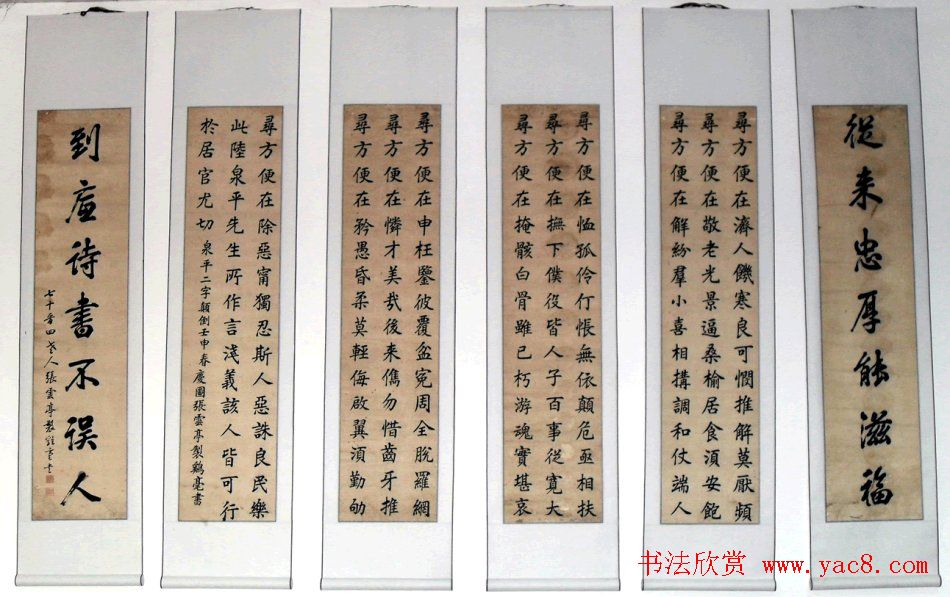 從来忠厚能滋福
尋方便在濟人饑寒良可憫推解莫厭頻
尋方便在敬老光景逼桑榆居食須安飽
尋方便在解紛羣小喜相搆調和仗端人
尋方便在恤孤伶仃悵無依顛危亟相扶
尋方便在撫下僕役皆人子百事從寬大
尋方便在掩骸白骨雖已朽游魂實堪哀
尋方便在申枉鑒彼覆盆冤周全脫羅網
尋方便在憐才美哉後来儁勿惜齒牙推
尋方便在矜愚昏柔莫輕侮啟翼須勤劬
尋方便在除惡甯獨忍斯人惡誅良民樂
此陸泉平先生所作言淺義該人皆可行
於居官尤切 泉平二字顛倒壬申春慶圃張雲亭製鷄毫書
到底诗書不误人
七十有四老人張雲亭製
书法欣赏 www.yac8.com